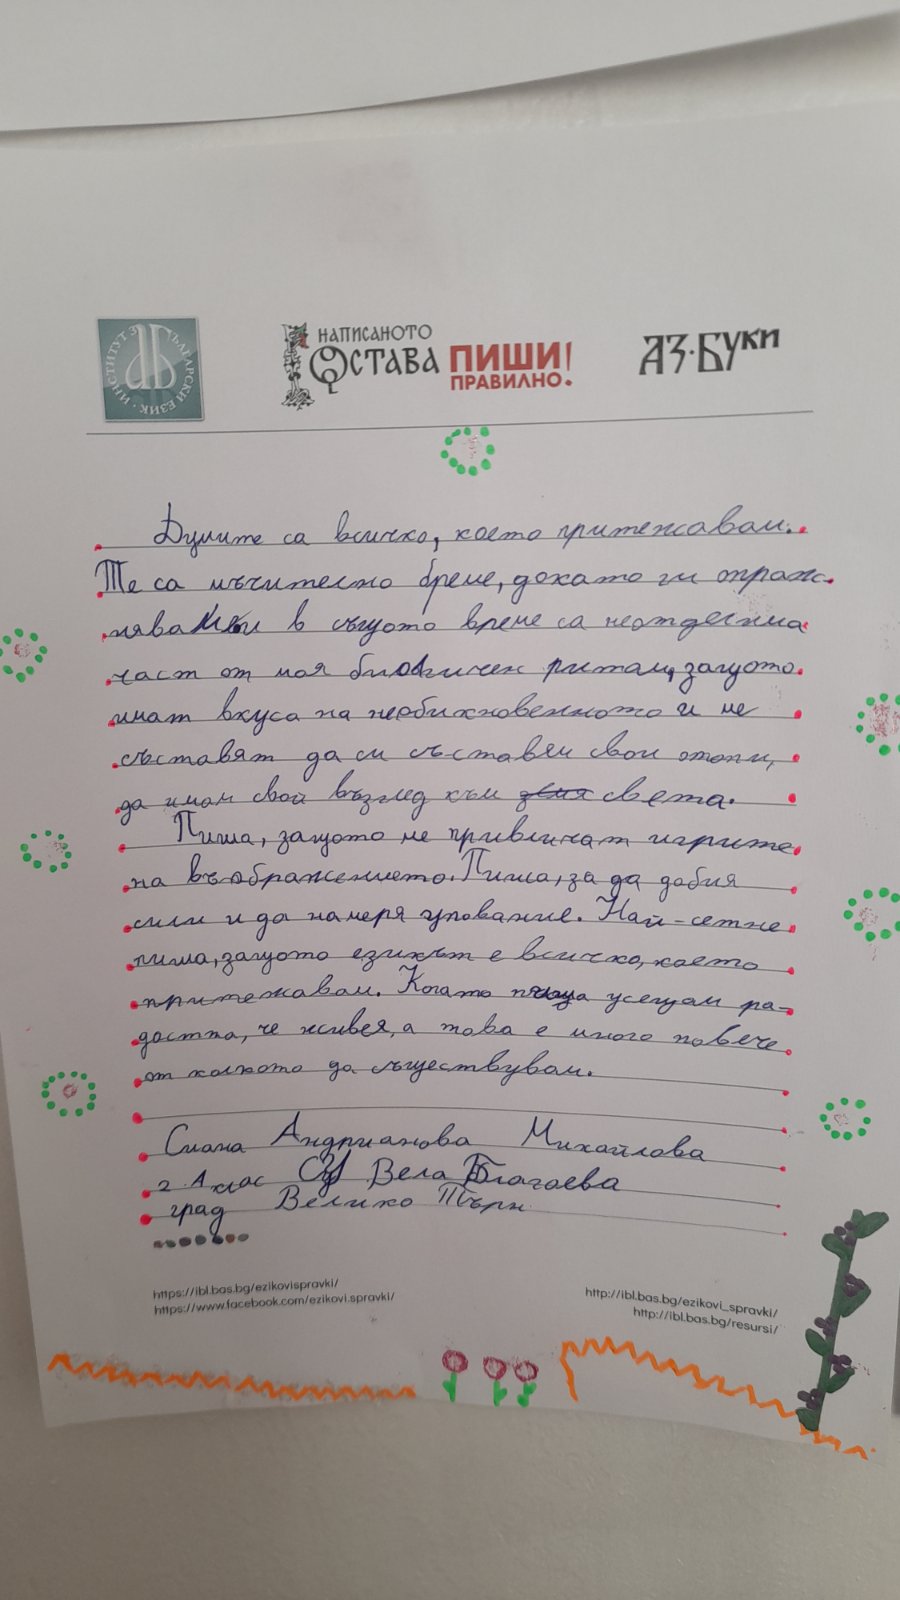 ИНСТИТУТ ЗА БЪЛГАРСКИ ЕЗИК
НАПИСАНОТО
ОСТАВА ПИШИ
ПРАВИЛНО!
АЗ·БУКИ
Думите са всичко, което притежавам.
Те са мъчително бреме, докато ги упраж-
нявам и в същото време са неотделима
част от моя биологичен ритъм, защото
имат вкуса на необикновенното и ме
съставят да си съставям свои опопи,
да имам свой възглед към света.
Пиша, защото ме привличат игрите
на въображението. Пиша, за да добия
сили и да намеря упование. Най-сетне
пиша, защото езикът е всичко, което
притежавам. Когато пиша усещам ра-
достта, че живея, а това е много повече
от колкото да съществувам.
Сиана Андрианова Михайлова
2.А клас СУ Вела Благоева
град Велико Търн
https://ibl.bas.bg/ezikovispravki/
https://www.facebook.com/ezikovi.spravki/
http://ibl.bas.bg/ezikovi_spravki/
http://ibl.bas.bg/resursi/